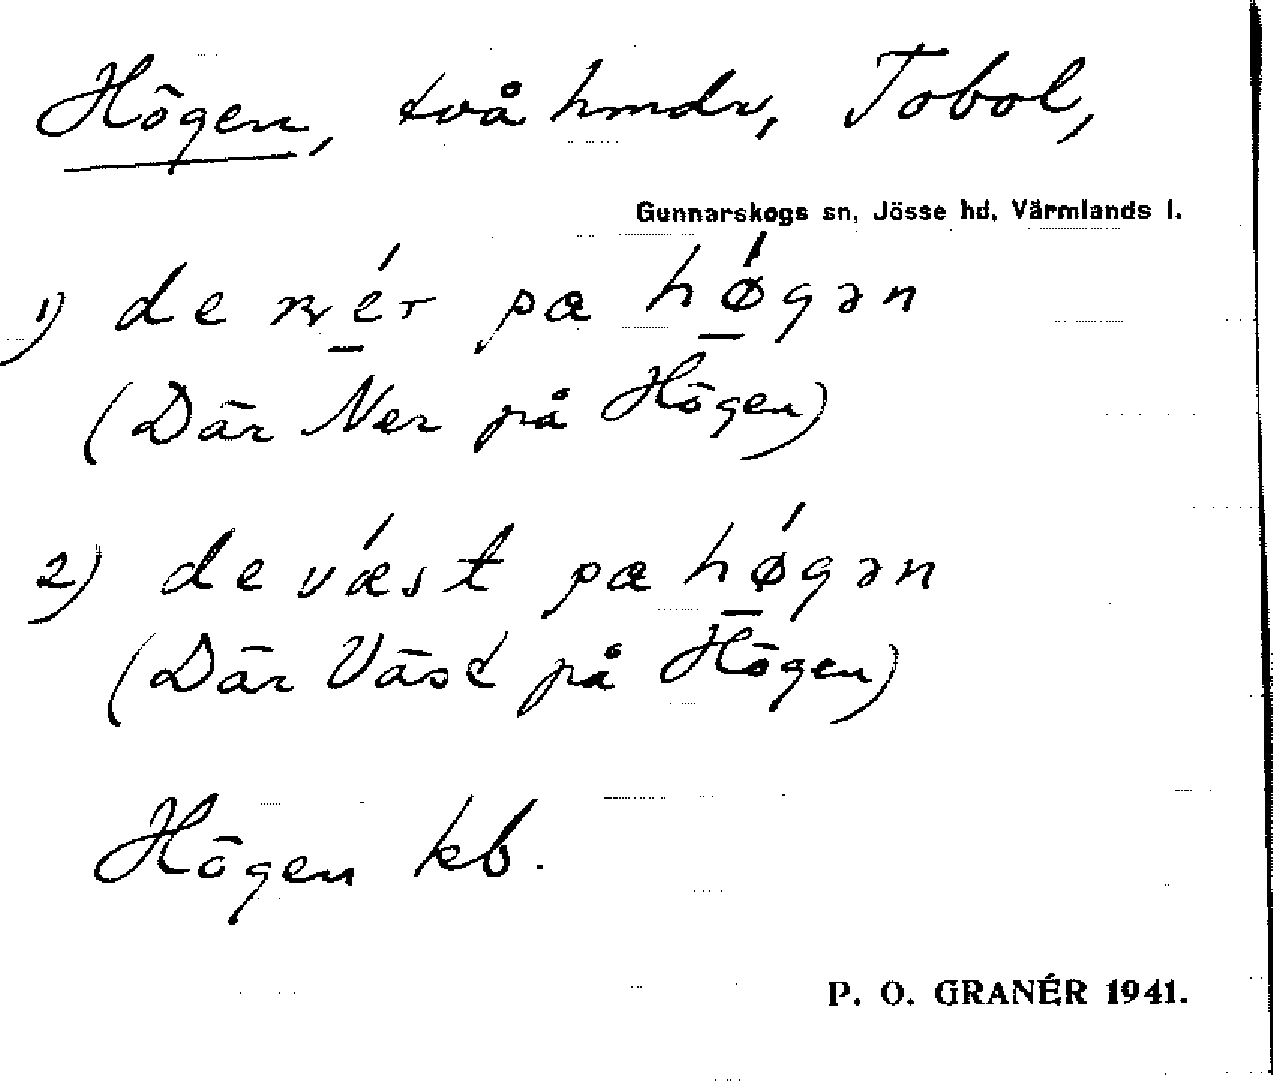 Högen, två hmdr, Tobol,
Gunnarskogs sn, Jösse hd, Värmlands l.
1) de nér pœ hǿgən
(Där Ner på Högen)
2) de vǽst pœ hǿgən
(Där Väst på Högen)
Högen kb.
P. O. GRANÉR 1941.